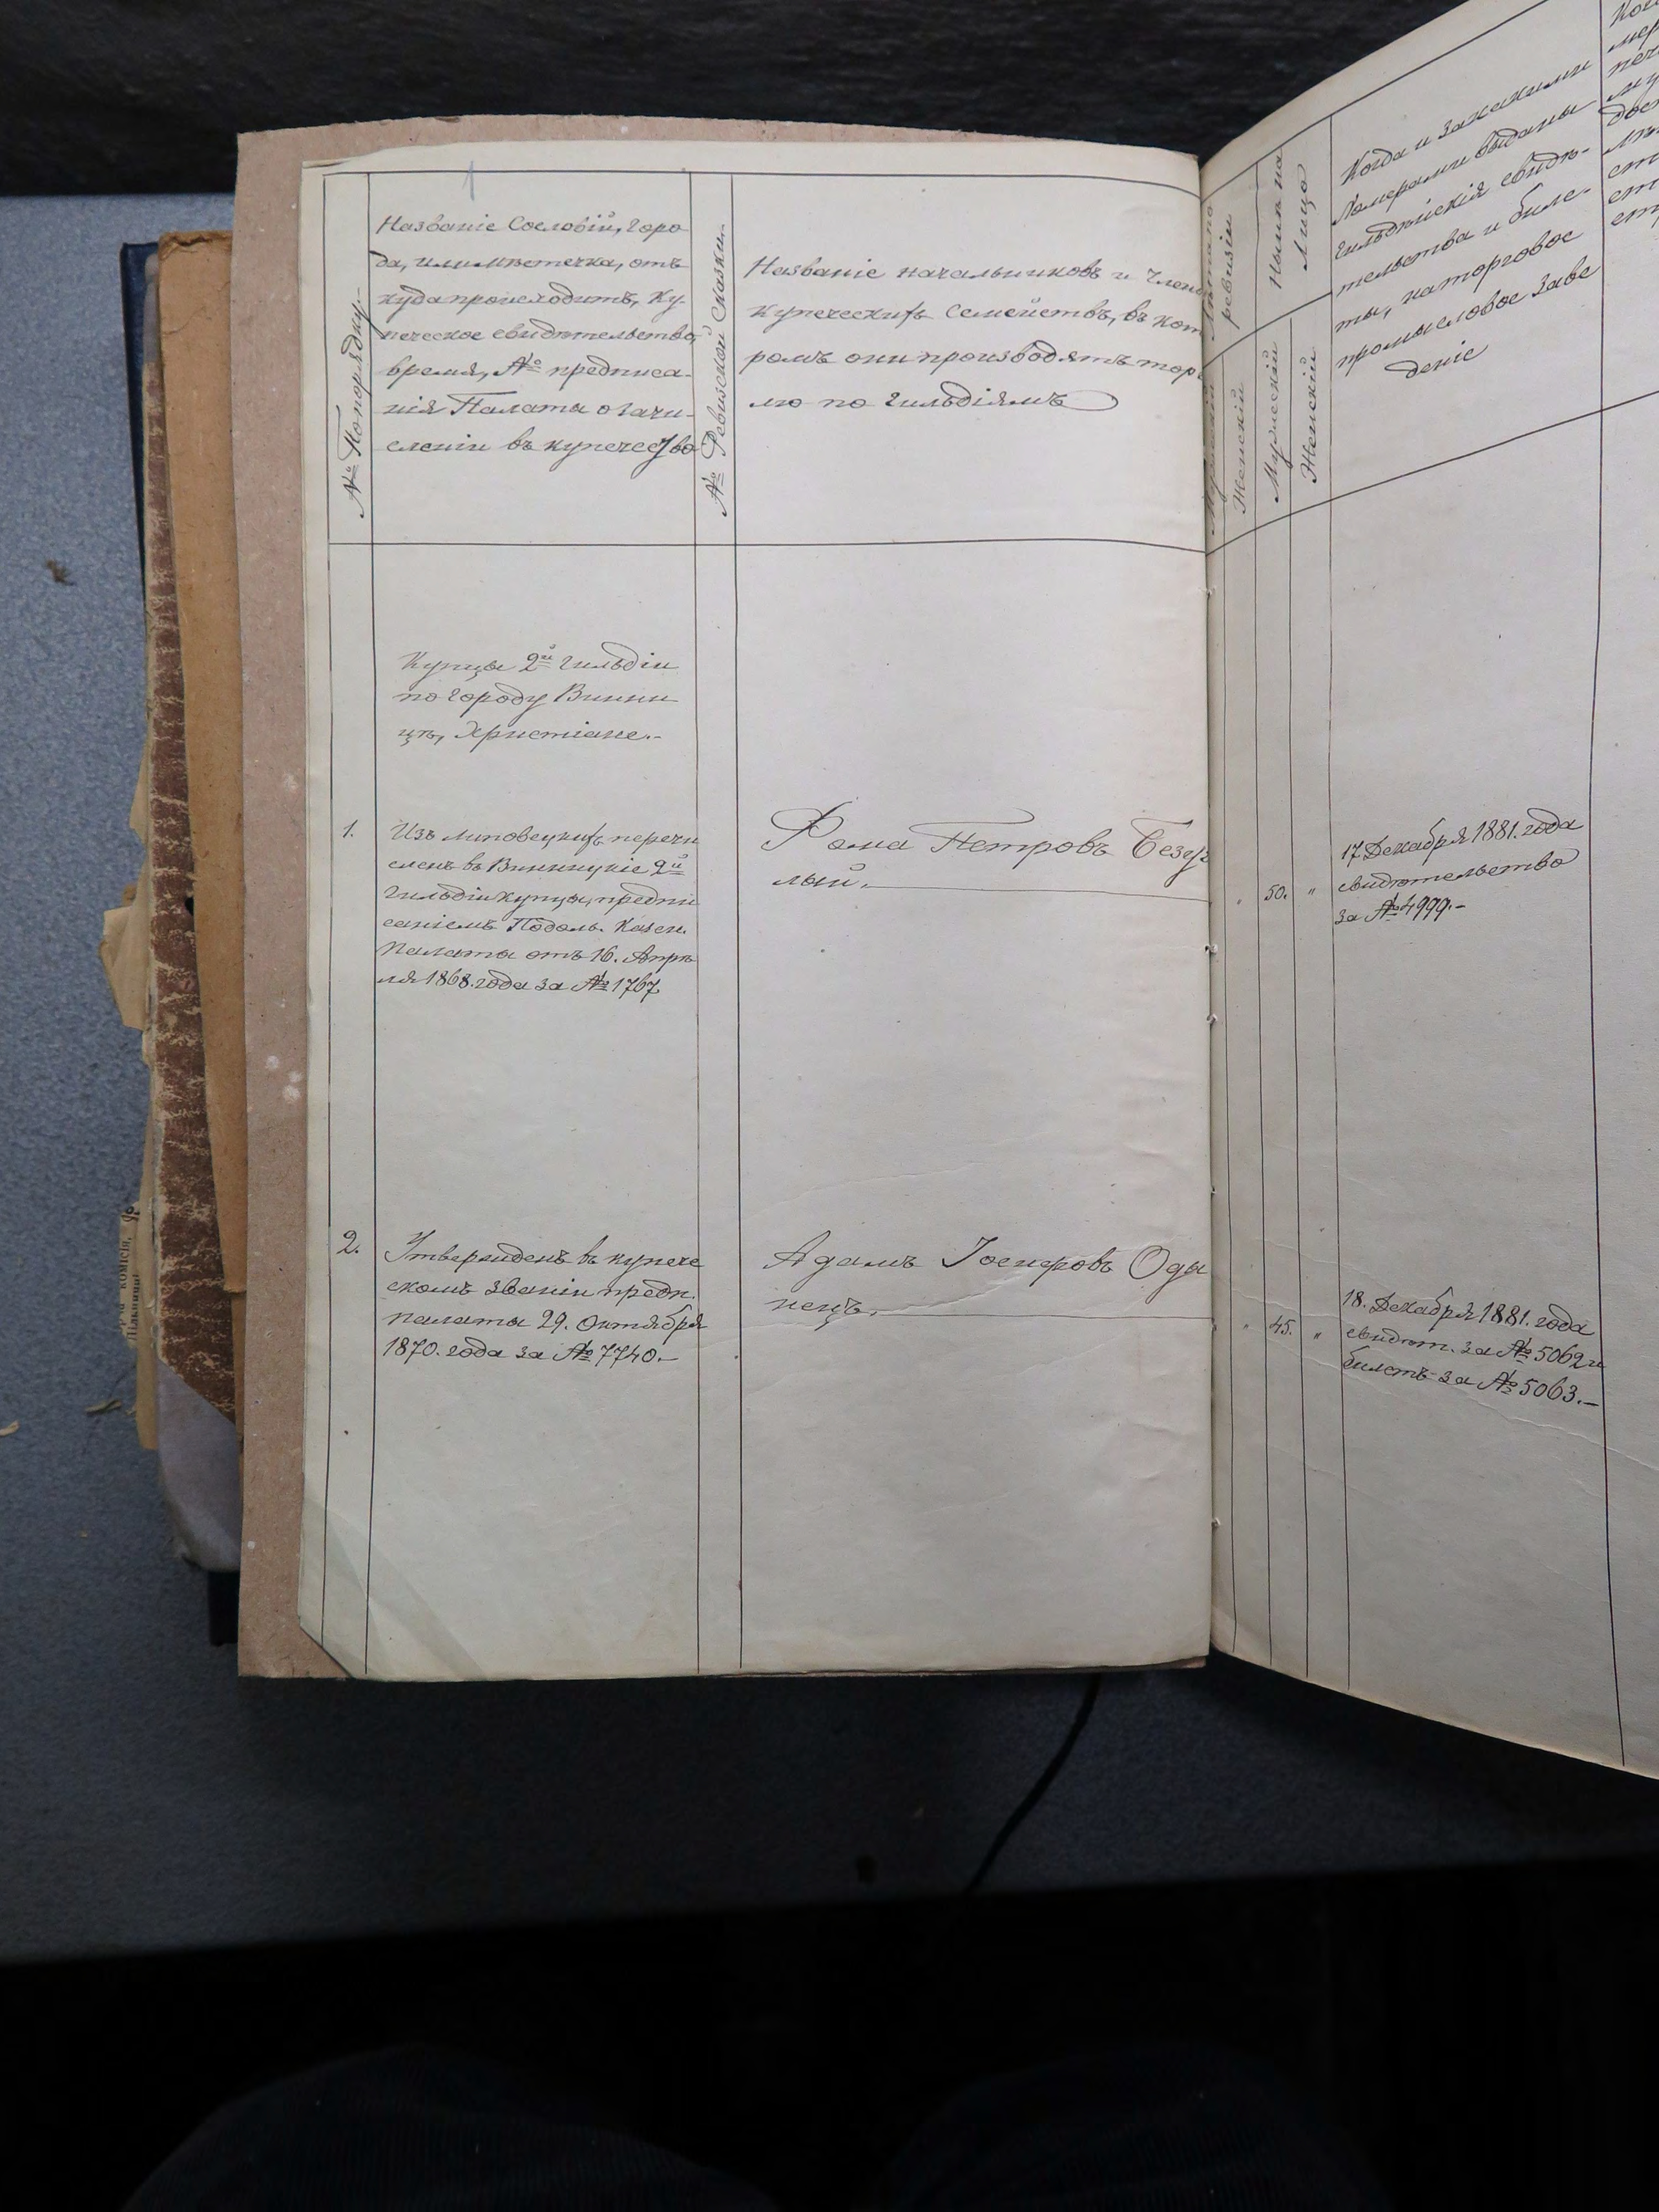 1
№ По порядку.
Названіе Сословій, горо
да, или мѣстечка, отъ
куда происходитъ, ку
печеское свидѣтельство,
время, № предписа-
нія Палаты о зачи-
сленіи въ купечество
№ Ревизской сказки.
Названіе начальниковъ и член
купеческихъ семействъ, въ кот
ромъ они производятъ тор
лю по гильдіямъ
ревизіи
Мужескій
Женскій
Нынѣ на
лицо
Мужескій
Женскій
Когда и за какими
Номерами выданы
гильдійскія свидѣ-
тельства и биле-
ты, на торговое
промысловое заве
деніе
Купцы 2й гильдіи
по городу Винни
цѣ, Христіане.-
1.
Изъ Липовецкихъ перечи
сленъ въ Винницкіе 2й
гильдіи купцы, предпи
саніемъ Подоль. Казен.
Палаты отъ 16. Апрѣ
ля 1868. года за № 1767
Фома Петровъ Безуг
лый.
50. "
17 Декабря 1881. года
свидѣтельство
за № 4999.-
2.
Утвержденъ въ купече
скомъ званіи предп.
палаты 29. Октября
1870. года за № 7740.-
Адамъ Іосифовъ Оды
нецъ.
" 45. "
18. Декабря 1881. года
свидѣт. за № 5062 и
билетъ за № 5063.-